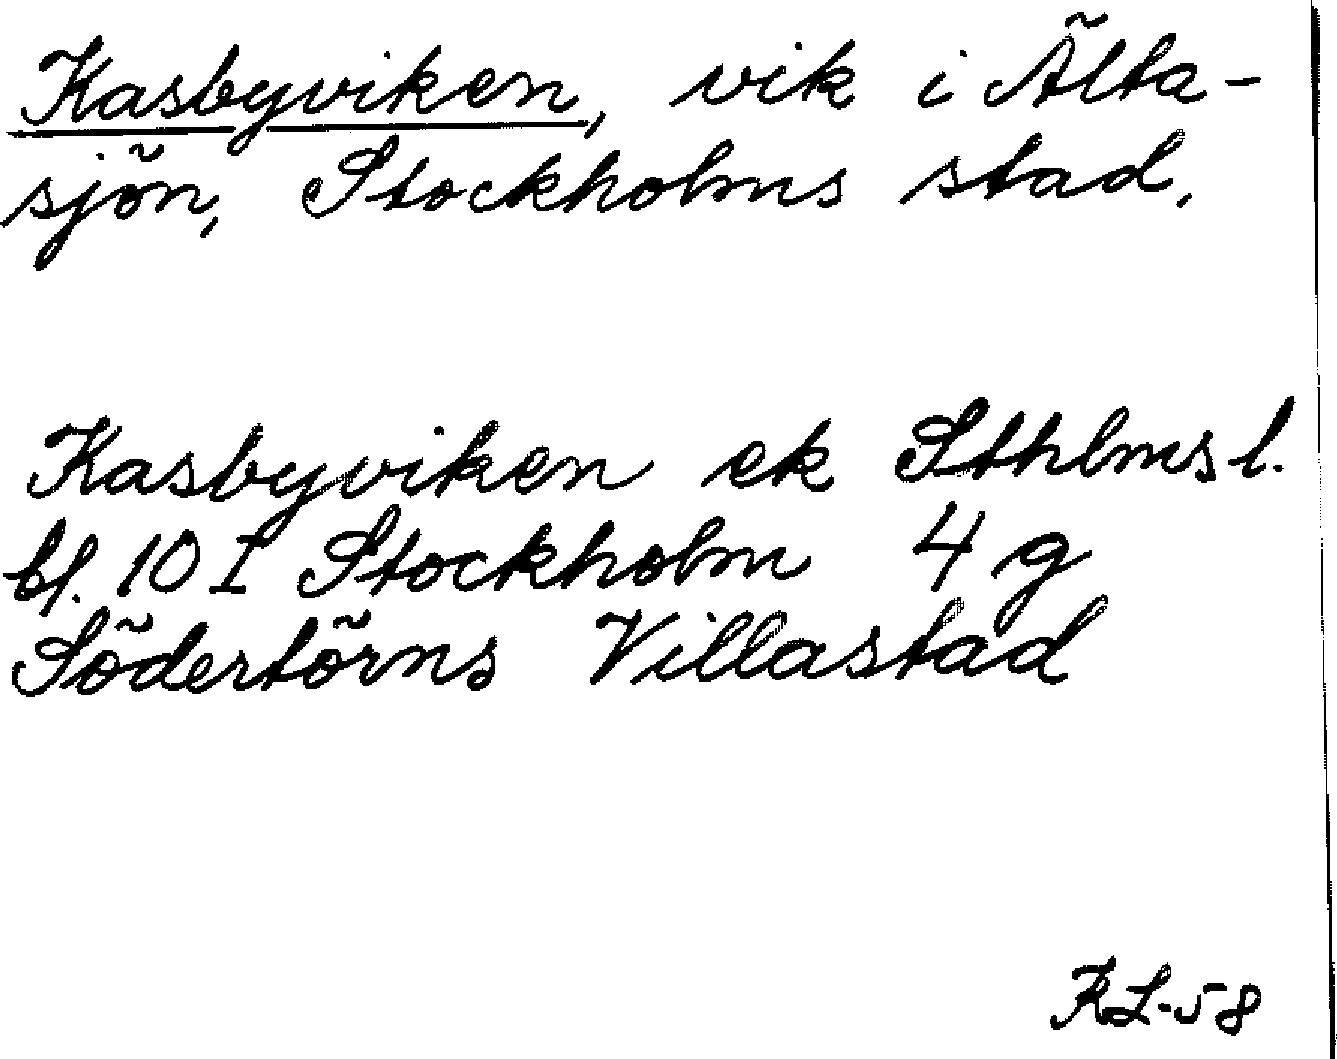 Kasbyviken, vik i Älta-
sjön, Stockholms stad.
Kasbyviken ek Sthlms l.
bl. 10 I Stockholm 4 g
Södertörns Villastad
KL-58